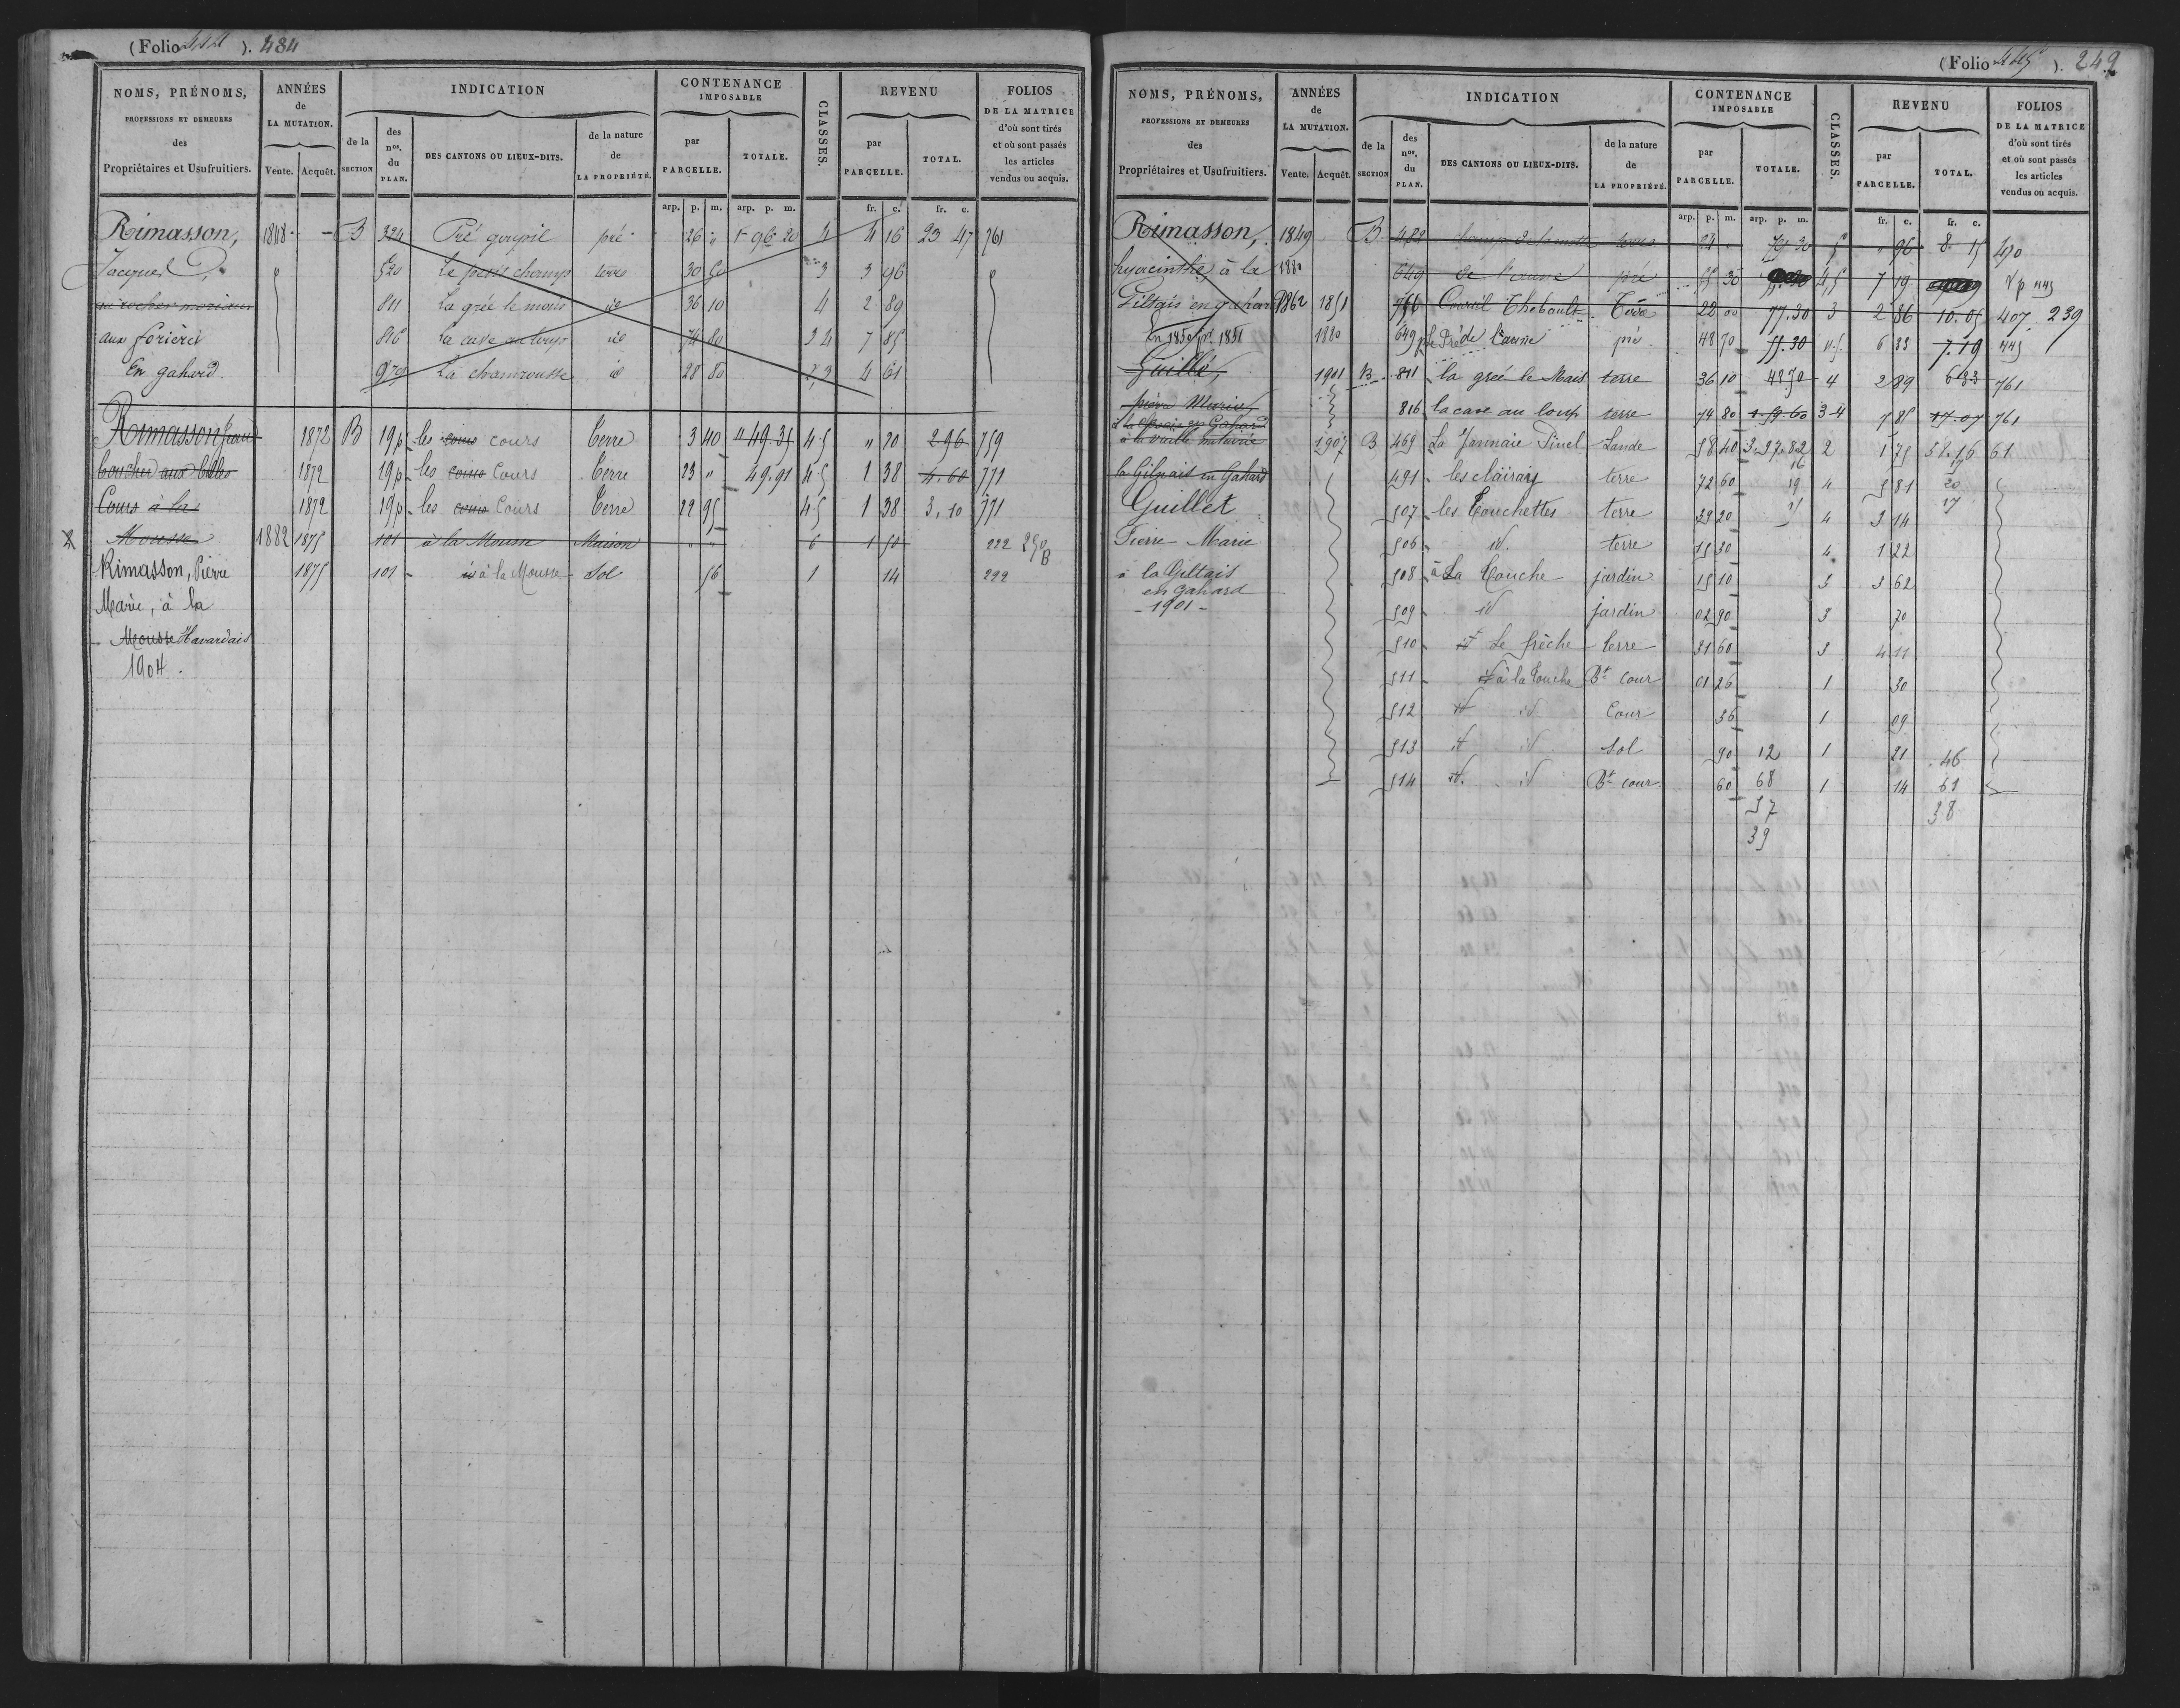 (Folio 484
NOMS, PRÉNOMS, PROFESSIONS ET DEMEURES des Propriétaires et Usufruitiers.
ANNÉES de LA MUTATION. Vente. Acquêt.
INDICATION de la SECTION des nos. du PLAN. DES CANTONS OU LIEUX-DITS. de la nature de LA PROPRIÉTÉ.
CONTENANCE IMPOSABLE par PARCELLE. TOTALE.
CLASSES.
REVENU par PARCELLE. TOTAL.
FOLIOS DE LA MATRICE d'où sont tirés et où sont passés les articles vendus ou acquis.
arp. p. m. arp. p. m. fr. c. fr. c.
Rimasson, 1848 B 324 Pré goupil pré 26 " 1 96 20 4 4 16 23 47 761
Jacques 520 Le petit champ terre 30 50 3 3 96
811 La grée le mais id 36 10 4 2 89
aux forières 816 La cave au loup id 74 80 3 4 7 85
En gahard. 970 La chamrousse id 28 80 2,3 4 61
Rimasson Jean 1872 B 19p les cours terre 3 40 49.35 4-5 " 20 2 96 759
boucher aux belles 1872 19p les Cours terre 23 " 49.91 4-5 1 38 4.60 771
Cours à la 1872 19p les Cours terre 22 95 4-5 1 38 3.10 771
Mousse 1882 1875 101 à la Mousse Maison " " 6 1 50 222 250
Rimasson, Pierre 1875 101 id à la Mousse Sol 56 1 14 222
Marie, à la
Mousse Havardais
1904.
(Folio 445 ). 249
NOMS, PRÉNOMS, PROFESSIONS ET DEMEURES des Propriétaires et Usufruitiers.
ANNÉES de LA MUTATION. Vente. Acquêt.
INDICATION de la SECTION des nos. du PLAN. DES CANTONS OU LIEUX-DITS. de la nature de LA PROPRIÉTÉ.
CONTENANCE IMPOSABLE par PARCELLE. TOTALE.
CLASSES.
REVENU par PARCELLE. TOTAL.
FOLIOS DE LA MATRICE d'où sont tirés et où sont passés les articles vendus ou acquis.
arp. p. m. arp. p. m. fr. c. fr. c.
Rimasson, 1849 B 488 champ de la motte terre 24 " 79 30 5 " 96 8 15 470
hyacinthe à la 1880 649 de l'aune pré 55 30 4,5 7 19 445
Piltais en gahard 1862 1851 766 Courtil Thébault Terre 22 00 77.30 3 2 86 10.05 407 239
En 1850 pr. 1851 1880 649p Pré de l'aune pré 48 70 55.30 4.5 6 33 7.19 445
Guillé, 1901 B 811 la greé le Mais terre 36 10 48 70 4 2 89 6 33 761
pierre Marie 816 la cave au loup terre 74 80 1.59.60 3-4 7 85 17.07 761
en Gahard
à la vieille métairie 1907 B 469 La Jannaie Pinel Lande 58 40 3 97 82 2 1 75 38.16 61
la Gilpais en Gahard 491 les clairais terre 72 60 16 19 4 5 81 17 20
Guillet 507 les Touchettes terre 29 20 4 3 14 17
Pierre Marie 506 id. terre 15 30 4 1 22
à la Giltais 508 à La Touche jardin 15 10 3 3 62
en Gahard
-1901- 509 id jardin 02 90 3 70
510 Le frêche terre 31 60 3 4 11
511 à la Touche Bt cour 01 26 1 30
512 id id Cour 36 1 09
513 id id Sol 90 12 1 21 46
514 id. id Bt cour 60 68 1 14 61
57 38
39